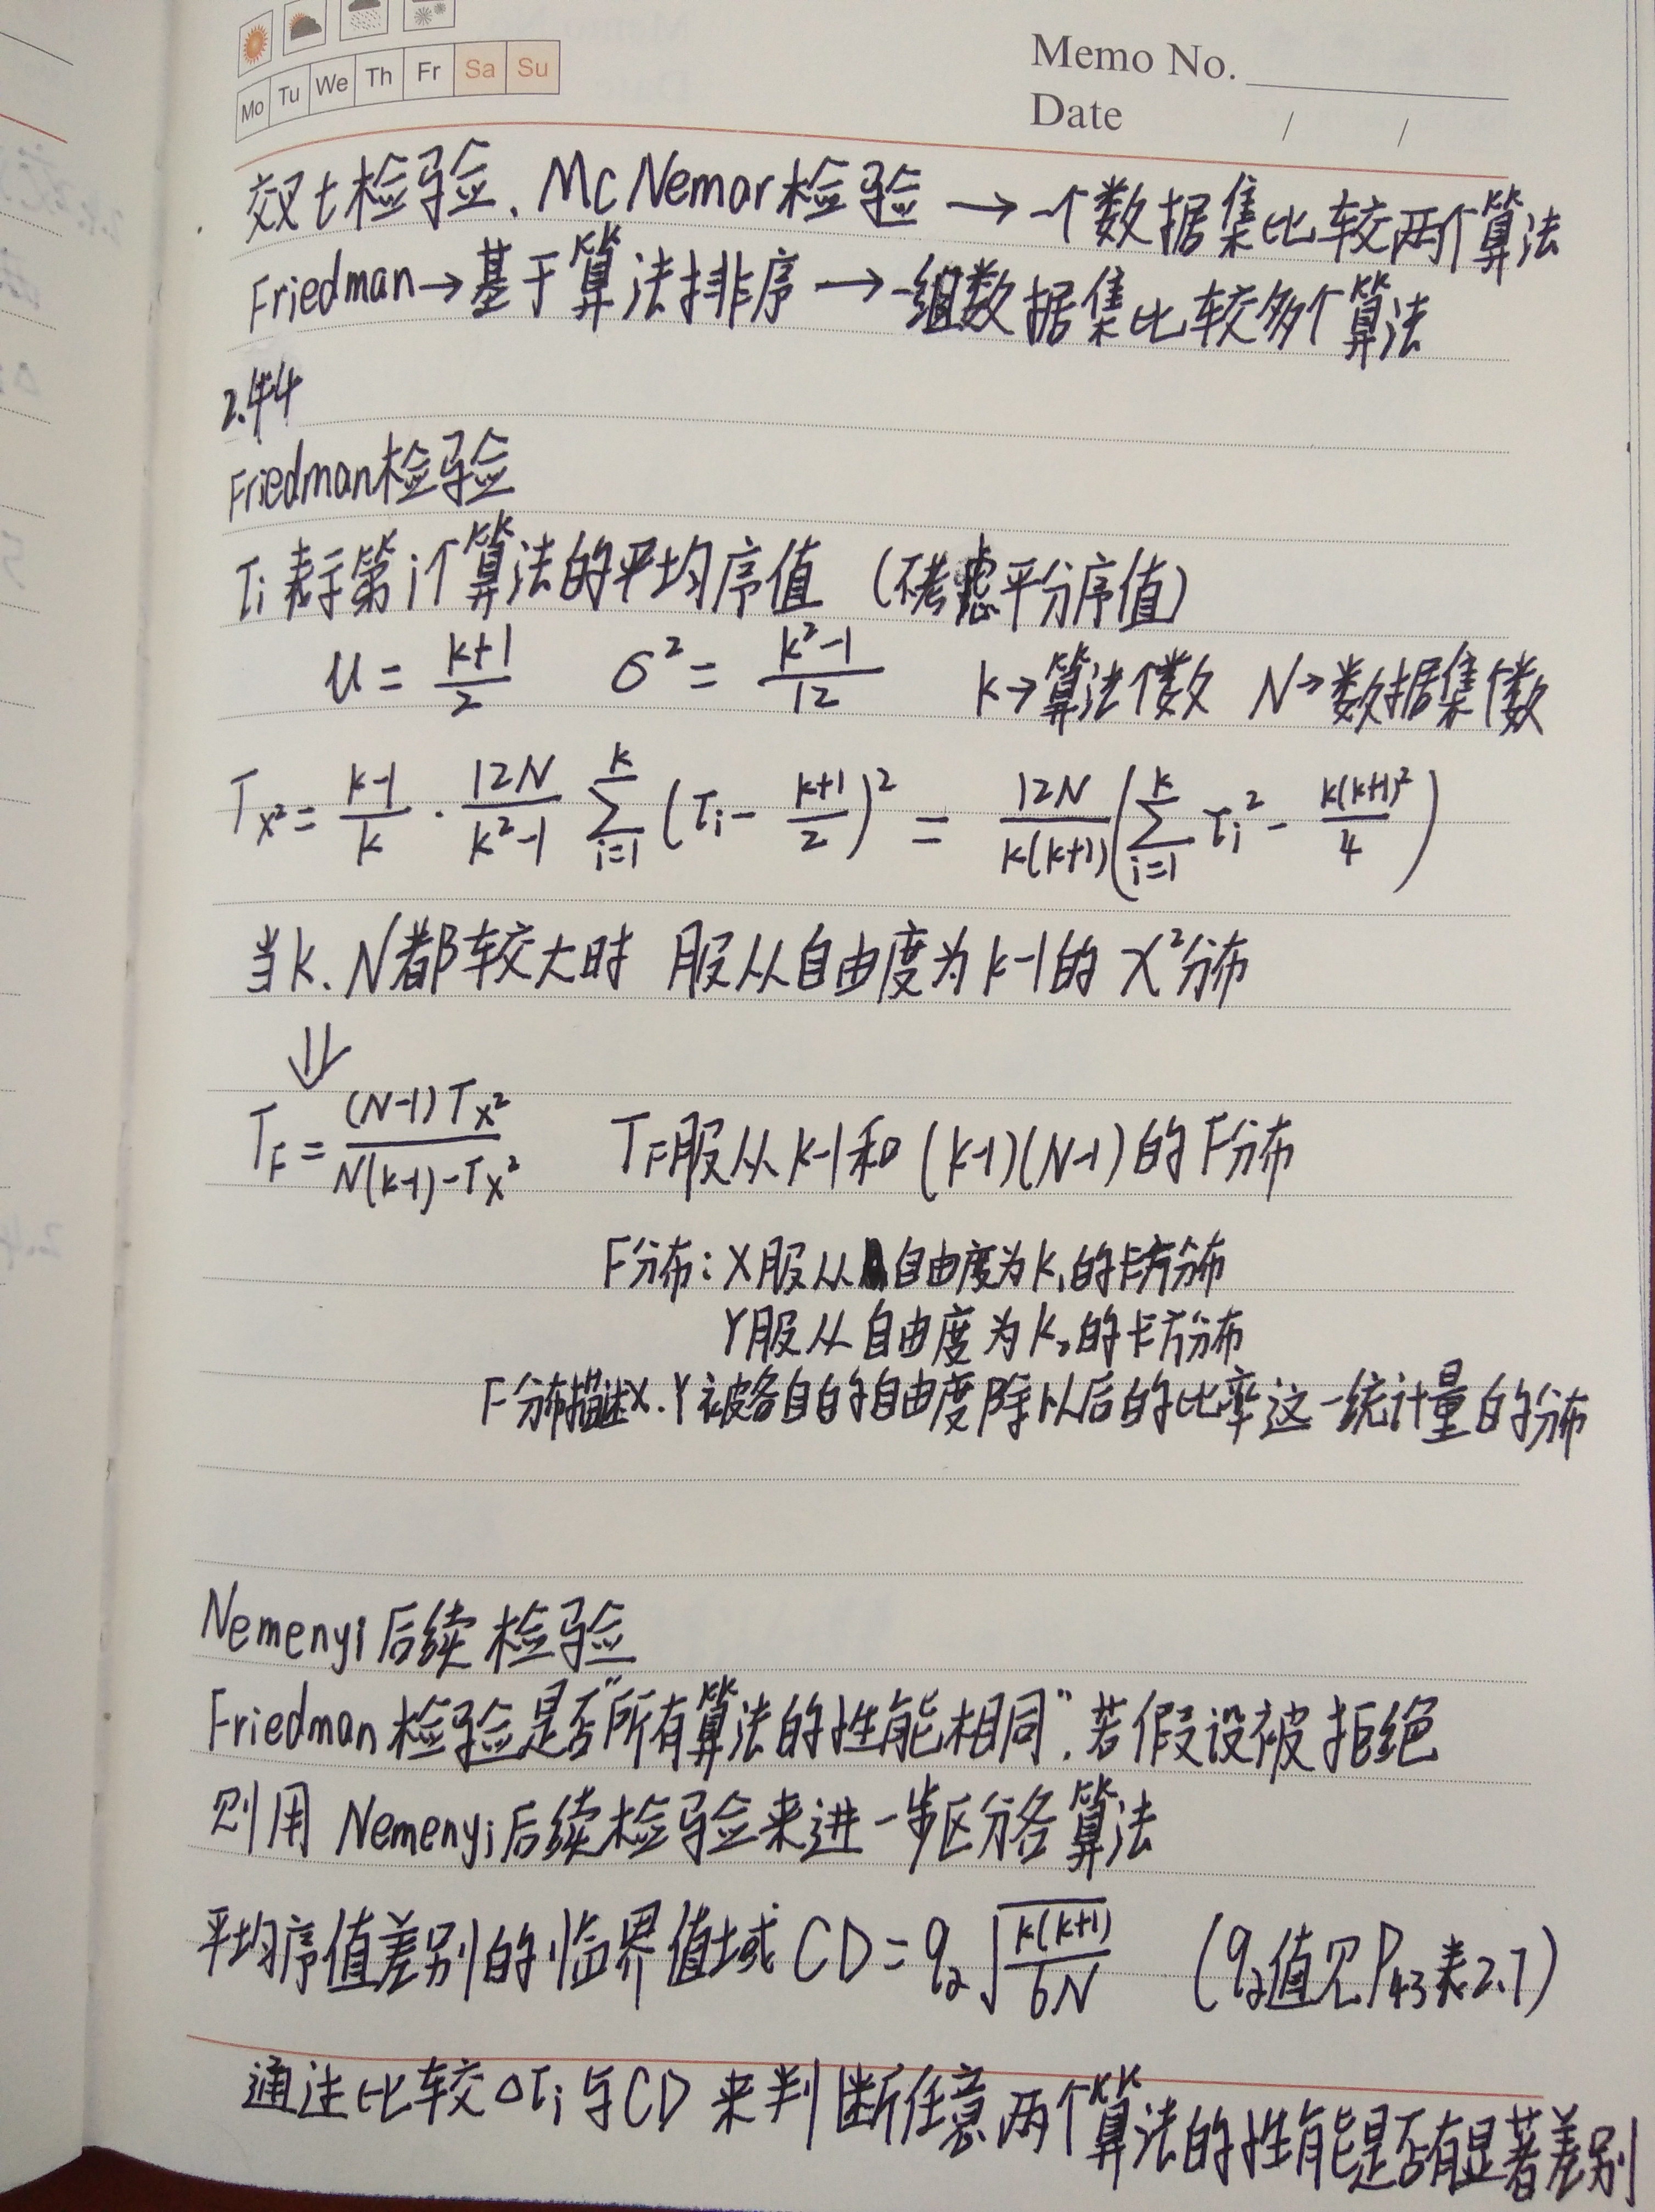 Mo Tu We Th Fr Sa Su
Memo No.
Date / /
交叉t检验、McNemar检验 → 一个数据集比较两个算法
Friedman→基于算法排序 → 一组数据集比较多个算法
2.4.4
Friedman检验
τi 表示第i个算法的平均序值 (不考虑平分序值)
u = (k+1)/2 σ² = (k²-1)/12 k→算法个数 N→数据集个数
Tx² = (k-1)/k · 12N/(k²-1) Σ(i=1..k) (τi - (k+1)/2)² = 12N/(k(k+1)) (Σ(i=1..k) τi² - k(k+1)²/4)
当k、N都较大时 服从自由度为k-1的 X²分布
⇓
TF = (N-1)Tx² / (N(k-1)-Tx²) TF服从k-1和(k-1)(N-1)的F分布
F分布: X服从自由度为k₁的卡方分布
Y服从自由度为k₂的卡方分布
F分布描述X、Y被各自的自由度除以后的比率这一统计量的分布
Nemenyi后续检验
Friedman检验是否"所有算法的性能相同",若假设被拒绝
则用 Nemenyi后续检验来进一步区分各算法
平均序值差别的临界值域 CD = qα√(k(k+1)/6N) (qα值见P43表2.7)
通过比较△τi与CD 来判断任意两个算法的性能是否有显著差别